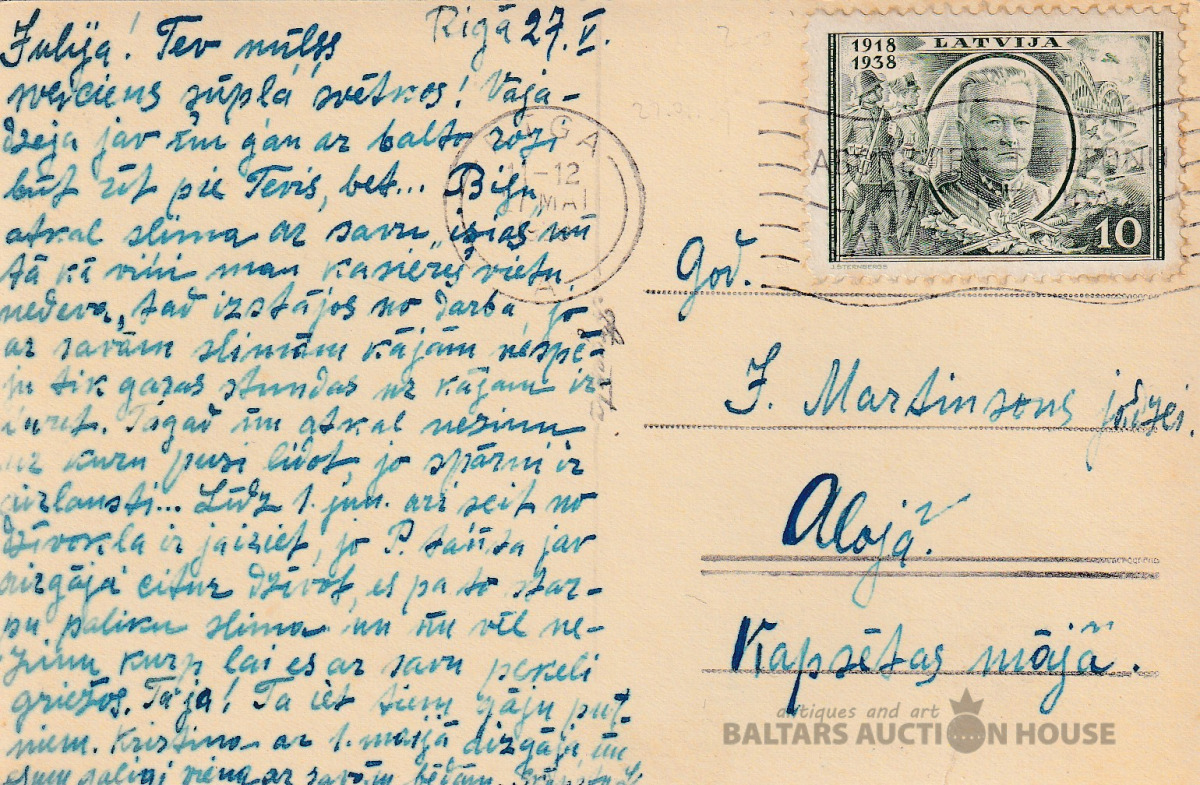 Rīgā 27.V.
Julija! Tev mīļšs
sveiciens svētkos! Vaja-
dzeja jav gan ar balto rozi
būt pie Tevis, bet... Biju
atkal slima ar savu
tā kā viņi man kasieres vietu
nedeva, tad izstājos no darba, jo
ar savām slimām kājām nespē-
ju tik gaŗas stundas uz kājām iz-
turet. Tagad atkal nezinu
uz kuru pusi lidot, jo spārni ir
aizlausti... Līdz 1. jun. ari šeit no
dzīvokļa ir jaiziet, jo P. tante jav
aizgāja citur dzīvot, es pa to star-
pu paliku slima un nu vēl ne-
zinu kurp lai es ar savu pekeli
griežos. Tā ja! Tā iet tiem gāju put-
niem. Kristina ar 1. maijā aizgāja
esmu galigi viena ar savām bēdām.
1918
1938
LATVIJA
10
J. STERNBERGS
RIGA
-12
MAI
God.
J. Martinsons jādzei.
Alojā.
Kapsētas mājā.
antiques and art
BALTARS AUCTION HOUSE